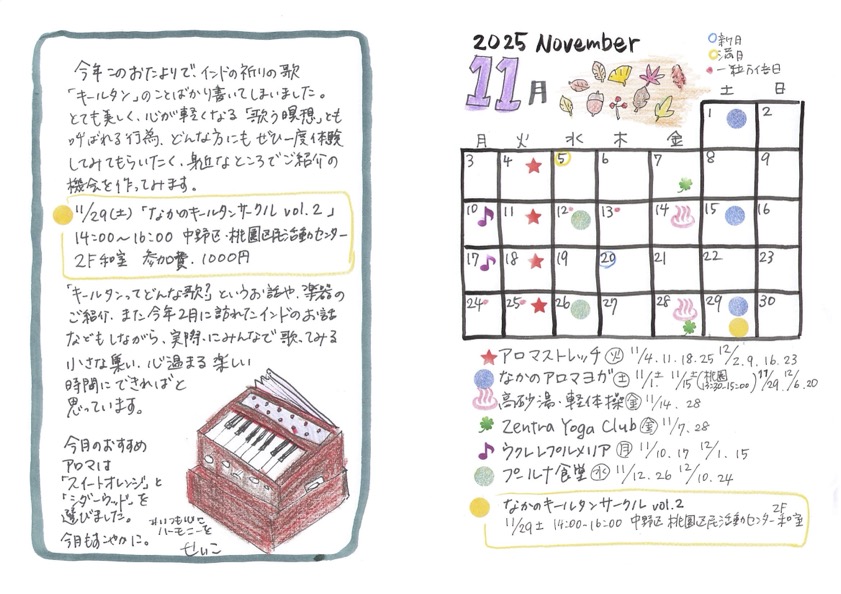 今年このおたよりで、インドの祈りの歌
「キールタン」のことばかり書いてしまいました。
とても楽しく、心が軽くなる「歌う瞑想」とも
呼ばれる行為、どんな方にもぜひ一度体験
してみてもらいたく、身近なところでご紹介の
機会を作ってみます。
11/29(土)「なかのキールタンサークル vol.2」
14:00〜16:00 中野区・桃園区民活動センター
2F和室 参加費.1000円
「キールタンってどんな歌?」というお話や、楽器の
ご紹介、また今年2月に訪れたインドのお話
などもしながら、実際にみんなで歌ってみる
小さな集い、心温まる楽しい
時間にできればと
思っています。
今月のおすすめ
アロマは
「スイートオレンジ」と
「シダーウッド」を
選びました。
今月もすこやかに。
いつも心に
ハーモニーを
せいこ
2025 November
11月
新月
満月
一粒万倍日
月 火 水 木 金 土 日
1 2
3 4 5 6 7 8 9
10 11 12 13 14 15 16
17 18 19 20 21 22 23
24 25 26 27 28 29 30
アロマストレッチ(火) 11/4.11.18.25 12/2.9.16.23
なかのアロマヨガ(土) 11/1.土 11/15(土)(桃園 13:30-15:00) 11/29.12/6.20
高砂湯・軽体操(金) 11/14.28
Zentra Yoga Club(金) 11/7.28
ウクレレプルメリア(月) 11/10.17 12/1.15
プルナ食堂(水) 11/12.26 12/10.24
なかのキールタンサークル vol.2
11/29土 14:00-16:00 中野区 桃園区民活動センター 2F和室